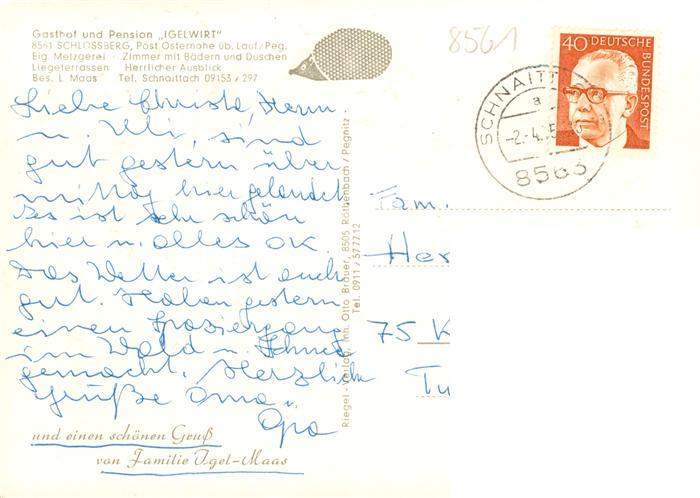 Gasthof und Pension „IGELWIRT"
8561 SCHLOSSBERG, Post Osternohe üb. Lauf/Peg.
Eig. Metzgerei · Zimmer mit Bädern und Duschen
Liegeterrassen Herrlicher Ausblick
Bes. L. Maas Tel. Schnaittach 09153/297
8561
40 DEUTSCHE BUNDESPOST
SCHNAITT
a
-2.-4.
8563
Liebe Christa,
u. Uli, sind
gut gestern über
mittag hier gelandet
Es ist sehr schön
hier u. alles OK.
Das Wetter ist auch
gut. Haben gestern
einen Spaziergang
im Wald u. Schnee
gemacht. Herzliche
Grüße Oma u.
Opa
und einen schönen Gruß
von Familie Igel-Maas
Riegel-Verlag, Inh. Otto Brauer, 8505 Röthenbach/Pegnitz
Tel. 0911/577712
Fam.
Her
75 K
Tu